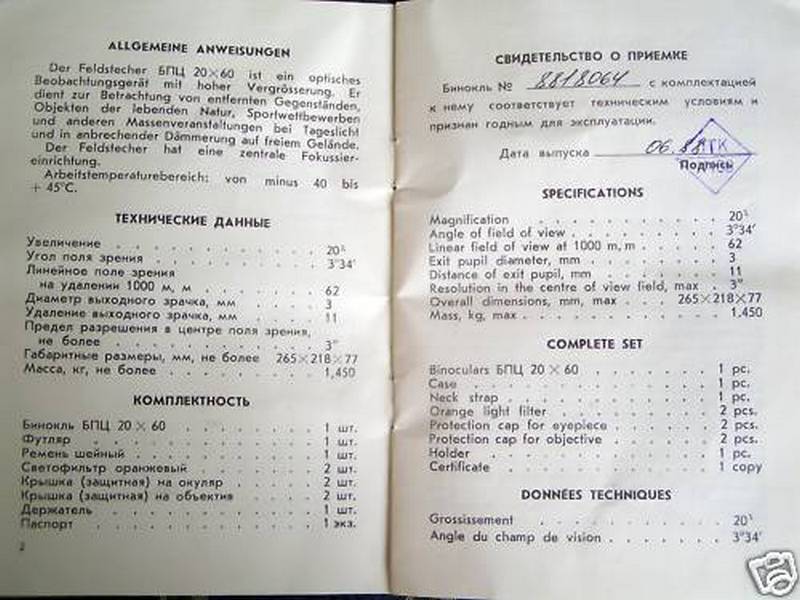 ALLGEMEINE ANWEISUNGEN
Der Feldstecher БПЦ 20×60 ist ein optisches
Beobachtungsgerät mit hoher Vergrösserung. Er
dient zur Betrachtung von entfernten Gegenständen,
Objekten der lebenden Natur, Sportwettbewerben
und anderen Massenveranstaltungen bei Tageslicht
und in anbrechender Dämmerung auf freiem Gelände.
Der Feldstecher hat eine zentrale Fokussier-
einrichtung.
Arbeitstemperaturebereich: von minus 40 bis
+ 45°C.
ТЕХНИЧЕСКИЕ ДАННЫЕ
Увеличение . . . . . . . . . . 20ˣ
Угол поля зрения . . . . . . . . 3°34′
Линейное поле зрения
на удалении 1000 м, м . . . . . . 62
Диаметр выходного зрачка, мм . . . . 3
Удаление выходного зрачка, мм . . . . 11
Предел разрешения в центре поля зрения,
не более . . . . . . . . . . 3″
Габаритные размеры, мм, не более 265×218×77
Масса, кг, не более . . . . . . . . 1,450
КОМПЛЕКТНОСТЬ
Бинокль БПЦ 20×60 . . . . . . . 1 шт.
Футляр . . . . . . . . . . . 1 шт.
Ремень шейный . . . . . . . . . 1 шт.
Светофильтр оранжевый . . . . . . 2 шт.
Крышка (защитная) на окуляр . . . . 2 шт.
Крышка (защитная) на объектив . . . . 2 шт.
Держатель . . . . . . . . . . 1 шт.
Паспорт . . . . . . . . . . . 1 экз.
2
СВИДЕТЕЛЬСТВО О ПРИЕМКЕ
Бинокль № 8818064 с комплектацией
к нему соответствует техническим условиям и
признан годным для эксплуатации.
Дата выпуска 06.88 ТК
Подпись
SPECIFICATIONS
Magnification . . . . . . . . . 20ˣ
Angle of field of view . . . . . . . 3°34′
Linear field of view at 1000 m, m . . . . 62
Exit pupil diameter, mm . . . . . . 3
Distance of exit pupil, mm . . . . . . 11
Resolution in the centre of view field, max . 3″
Overall dimensions, mm, max . . . 265×218×77
Mass, kg, max . . . . . . . . . 1,450
COMPLETE SET
Binoculars БПЦ 20×60 . . . . . . 1 pc.
Case . . . . . . . . . . . 1 pc.
Neck strap . . . . . . . . . . 1 pc.
Orange light filter . . . . . . . . 2 pcs.
Protection cap for eyepiece . . . . . 2 pcs.
Protection cap for objective . . . . . 2 pcs.
Holder . . . . . . . . . . . 1 pc.
Certificate . . . . . . . . . . 1 copy
DONNÉES TECHNIQUES
Grossissement . . . . . . . . . 20ˣ
Angle du champ de vision . . . . . . 3°34′